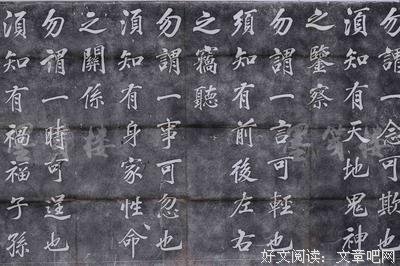 勿謂一念可欺也
須知有天地鬼神
之鑒察
勿謂一言可輕也
須知有前後左右
之竊聽
勿謂一事可忽也
須知有身家性命
之關係
勿謂一時可逞也
須知有禍福子孫
好文阅读：文章吧网